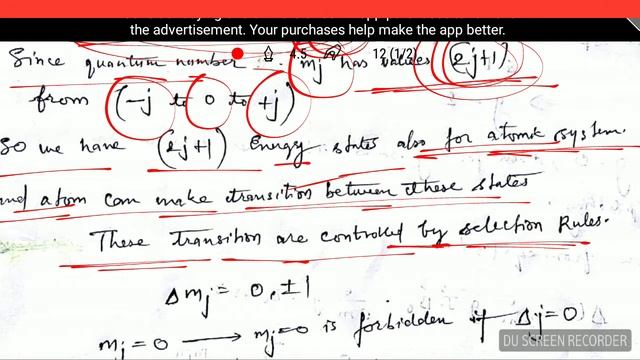 the advertisement. Your purchases help make the app better.
Since quantum number mj has values (2j+1)
from (-j to 0 to +j)
So we have (2j+1) Energy states also for atomic system.
and atom can make transition between these states
These transition are controlled by selection Rules.
Δmj = 0, ±1
mj = 0 → mj = 0 is forbidden if Δj = 0
DU SCREEN RECORDER